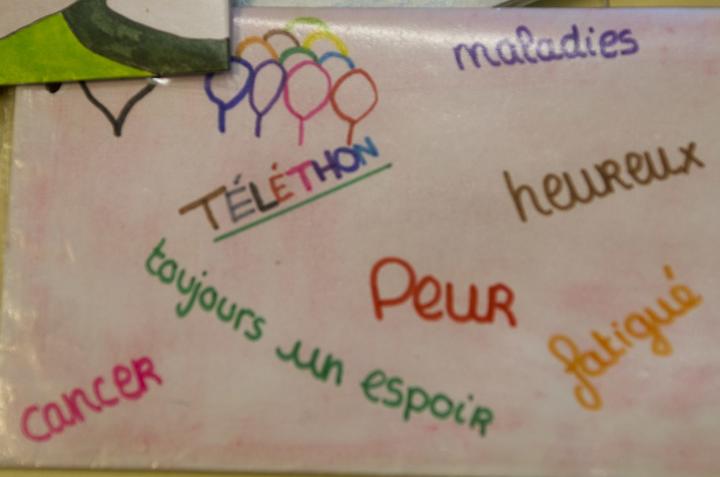 maladies
TÉLÉTHON
heureux
toujours un espoir
Peur
fatigué
cancer